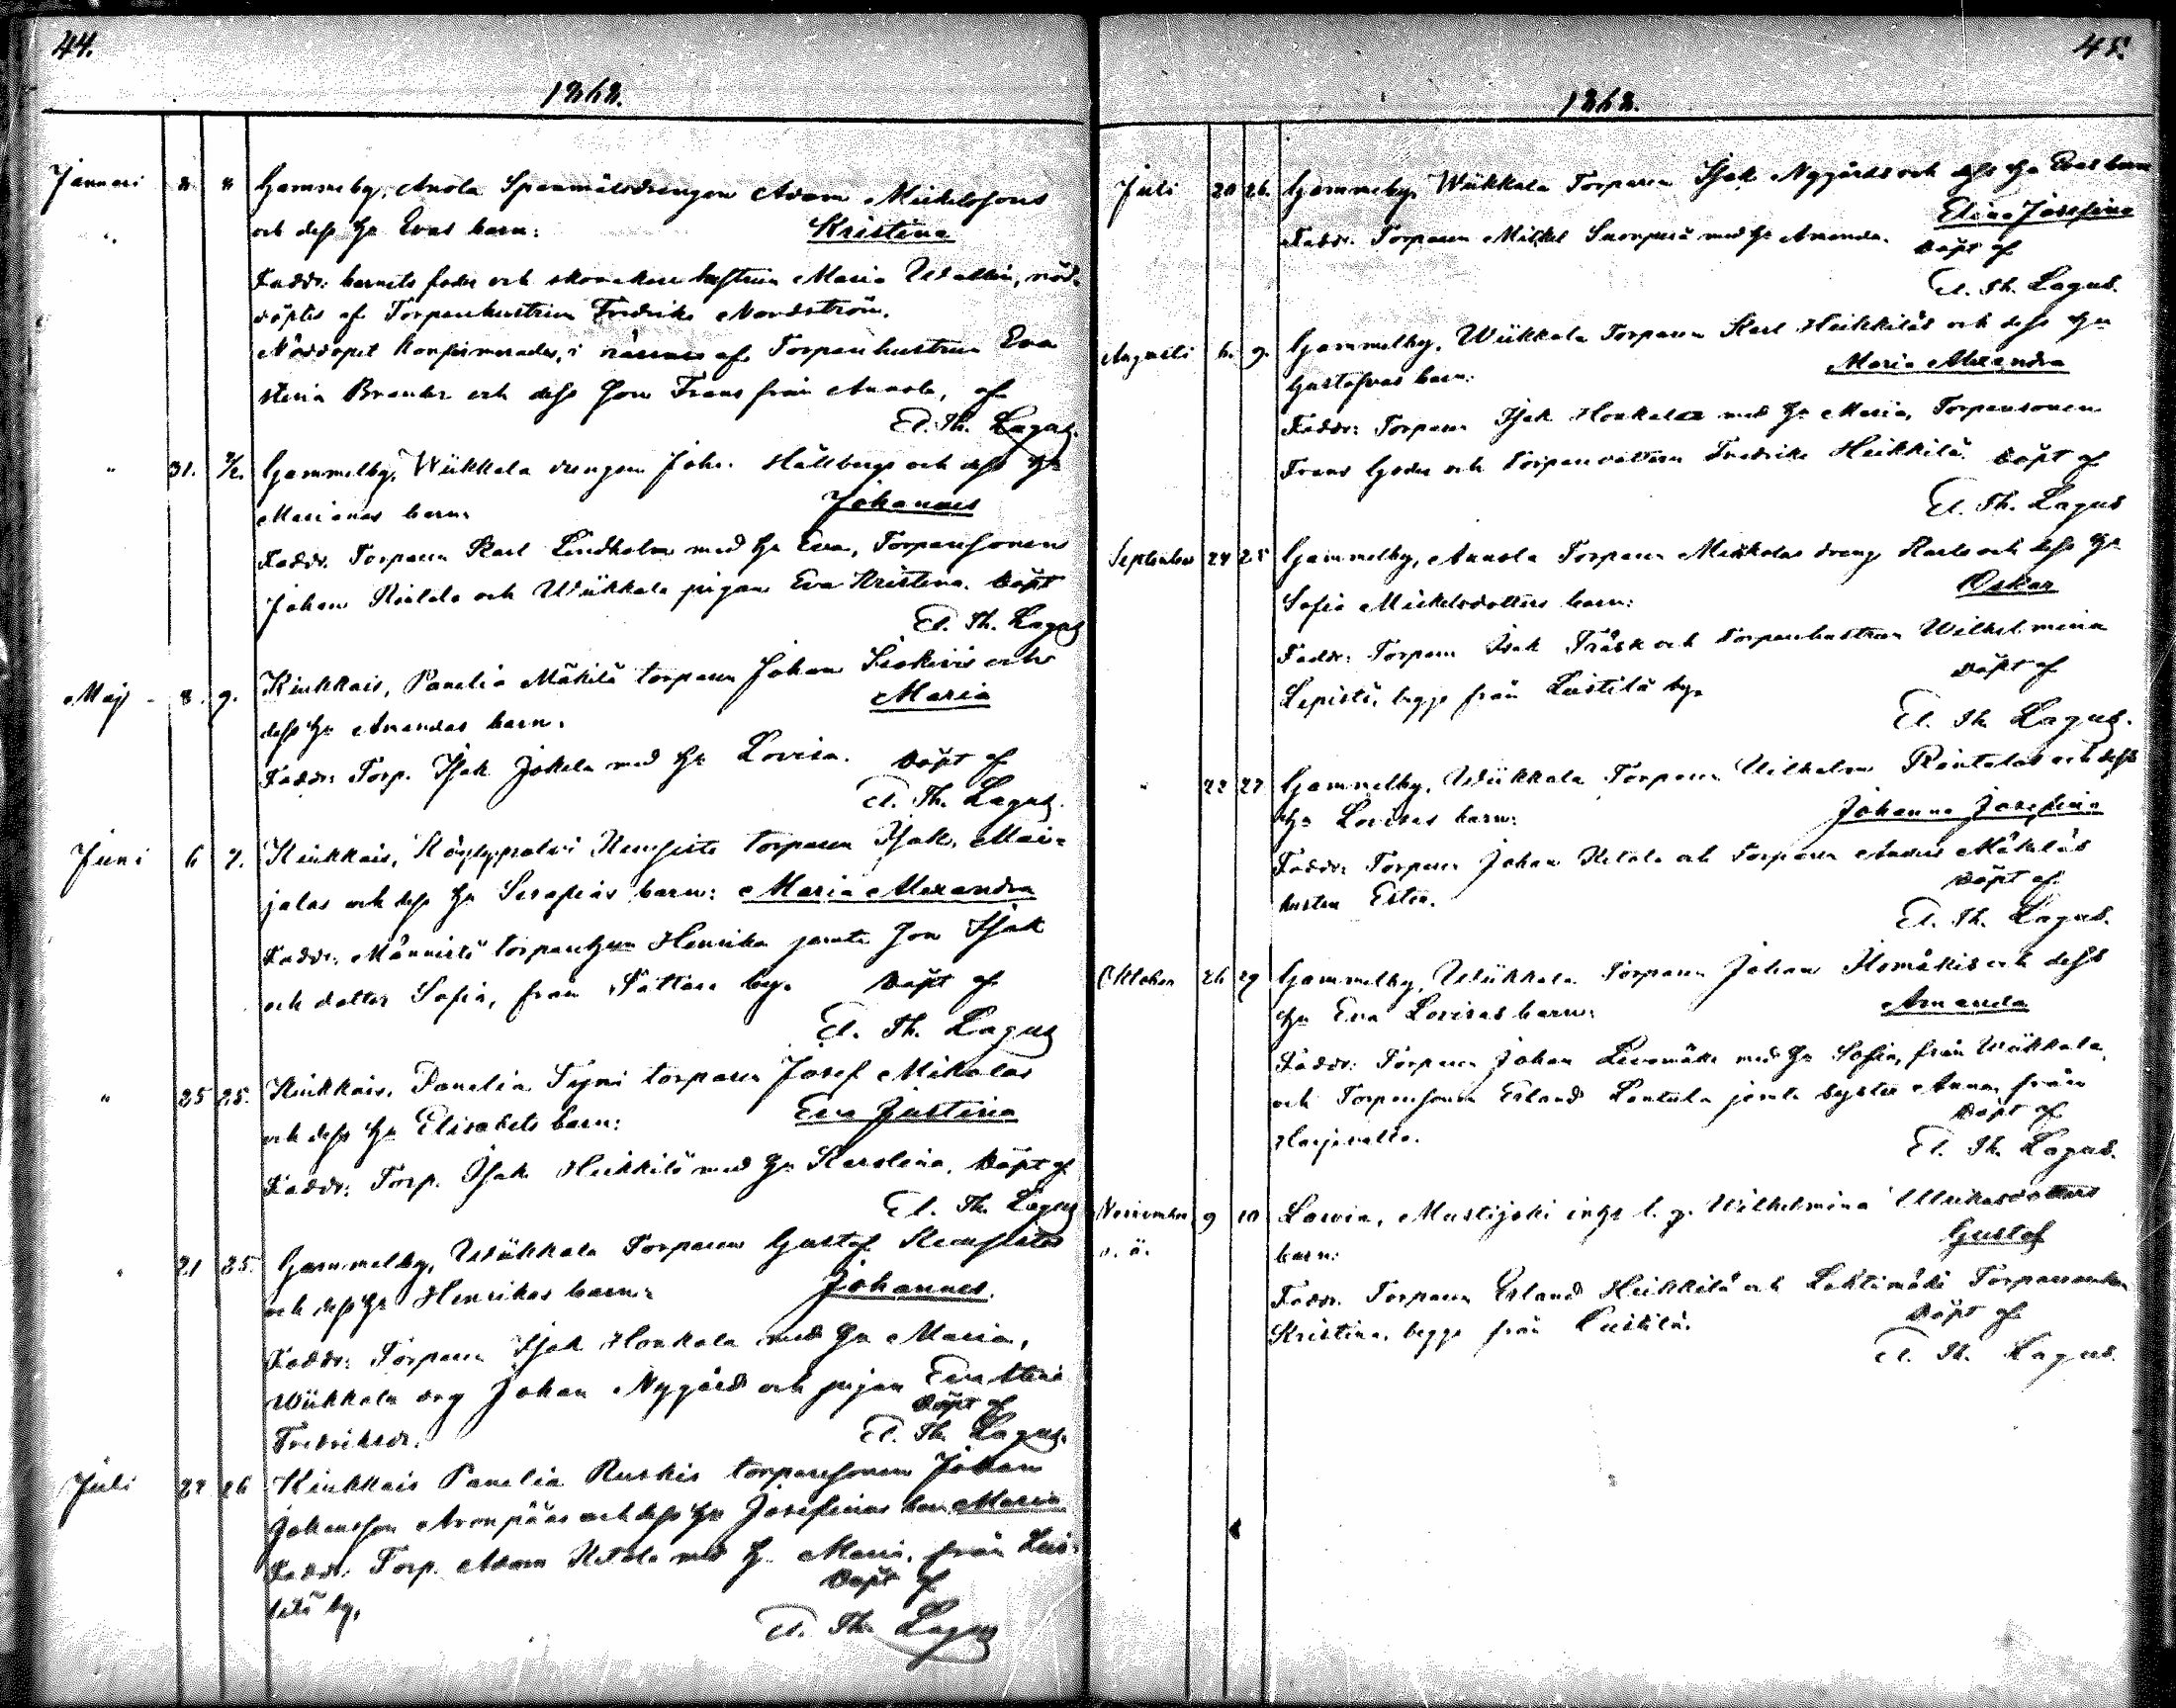 44.
1868.
Januari 8 8 Gammelby, Anola Spanmålsdrängen Adam Mickelssons
och dess Hu Evas barn: Kristina
Faddr: barnets fader och skomakare hustrun Maria Wallin, nöd-
döptes af Torparehustrun Fredrika Nordström.
Nöddopet konfirmerades, i närvaro af Torparehustrun Eva
Stina Brander och dess son Frans från Annola, af
A. Th. Lagus.
" 31. 2/2. Gammelby, Wiikkala drengen Joh. Hällbergs och dess Hu
Marianas barn: Johannes
Faddr. Torparen Karl Lindholm med Hu Eva, Torparesonen
Johan och Wiikkala pigan Eva Kristina. Döpt
A. Th. Lagus
Maj 8. 9. Kiukkais, Panelia Mäkilä torparen Johan och
dess Hu Amandas barn. Maria
Faddr: Torp. Isak Jokela med Hu Lovisa. Döpt af
A. Th. Lagus.
Juni 6 7. Kiukkais, torparen Isak Mai-
jalas och dess Hu Serafias barn: Maria Alexandra
Faddr: Männistö Henrika jemte son Isak
och dotter Sofia, från by. Döpt af
A. Th. Lagus
" 25 25. Kiukkais, Panelia torparen Josef Mikolas
och dess Hu Elisabets barn: Eva Justina
Faddr: Torp. Isak Heikkilä med Hu Karolina. Döpt af
A. Th. Lagus
" 21 25. Gammelby, Wiikkala Torparen Gustaf
och dess Hu Henrikas barn: Johannes.
Faddr: Torparen Isak Honkala med Hu Maria,
Wiikkala drg Johan Nygård och pigan Eva Stina
Fredriksdr. Döpt af
A. Th. Lagus.
Juli 22 26 Kiukkais Panelia Ruskis torparesonen Johan
Johansson och dess Hu Josefinas barn Maria
Faddr. Torp. Adam Ketola med Hu Maria, från Lui-
stilä by. Döpt af
A. Th. Lagus
45.
1868.
Juli 20 26. Gammelby, Wiikkala Torparen Isak Nygårds och dess Hu Evas barn
Elina Josefina
Faddr. Torparen Mikkel med Hu Amanda. Döpt af
A. Th. Lagus.
Augusti 6. 9. Gammelby, Wiikkala Torparen Karl Heikkiläs och dess Hu
Gustafvas barn: Maria Alexandra
Faddr: Torparen Isak Honkala med Hu Maria, Torparesonen
Frans och Torparedottern Fredrika Heikkilä. Döpt af
A. Th. Lagus
September 24 25 Gammelby, Annola Torparen Mikkolas dreng Karls och dess Hu
Sofia Mickelsdotters barn: Oskar
Faddr: Torparen Isak Träsk och Torparehustrun Wilhelmina
Lepistö, begge från Luistila by. Döpt af
A. Th. Lagus.
" 22 27 Gammelby, Wiikkala Torparen Wilhelm Rantalas och dess
Hu Lovisas barn: Johanna Josefina
Faddr: Torparen Johan Ketola och Torparen Anders Mäkiläs
hustru Ester. Döpt af
A. Th. Lagus.
Oktober 26 29 Gammelby, Wiikkala Torparen Johan och dess
Hu Eva Lovisas barn: Amanda
Faddr: Torparen Johan med Hu Sofia, från Wiikkala,
och Torparesonen Erland Lantala jemte syster Anna, från
Harjavalta. Döpt af
A. Th. Lagus.
November 9 10 Lavia, Mustijoki Wilhelmina Ulrikasdotters
o. ä. barn: Gustaf
Faddr. Torparen Erland Heikkilä och Lehtimäki
Kristina, begge från Luistila. Döpt af
A. Th. Lagus.